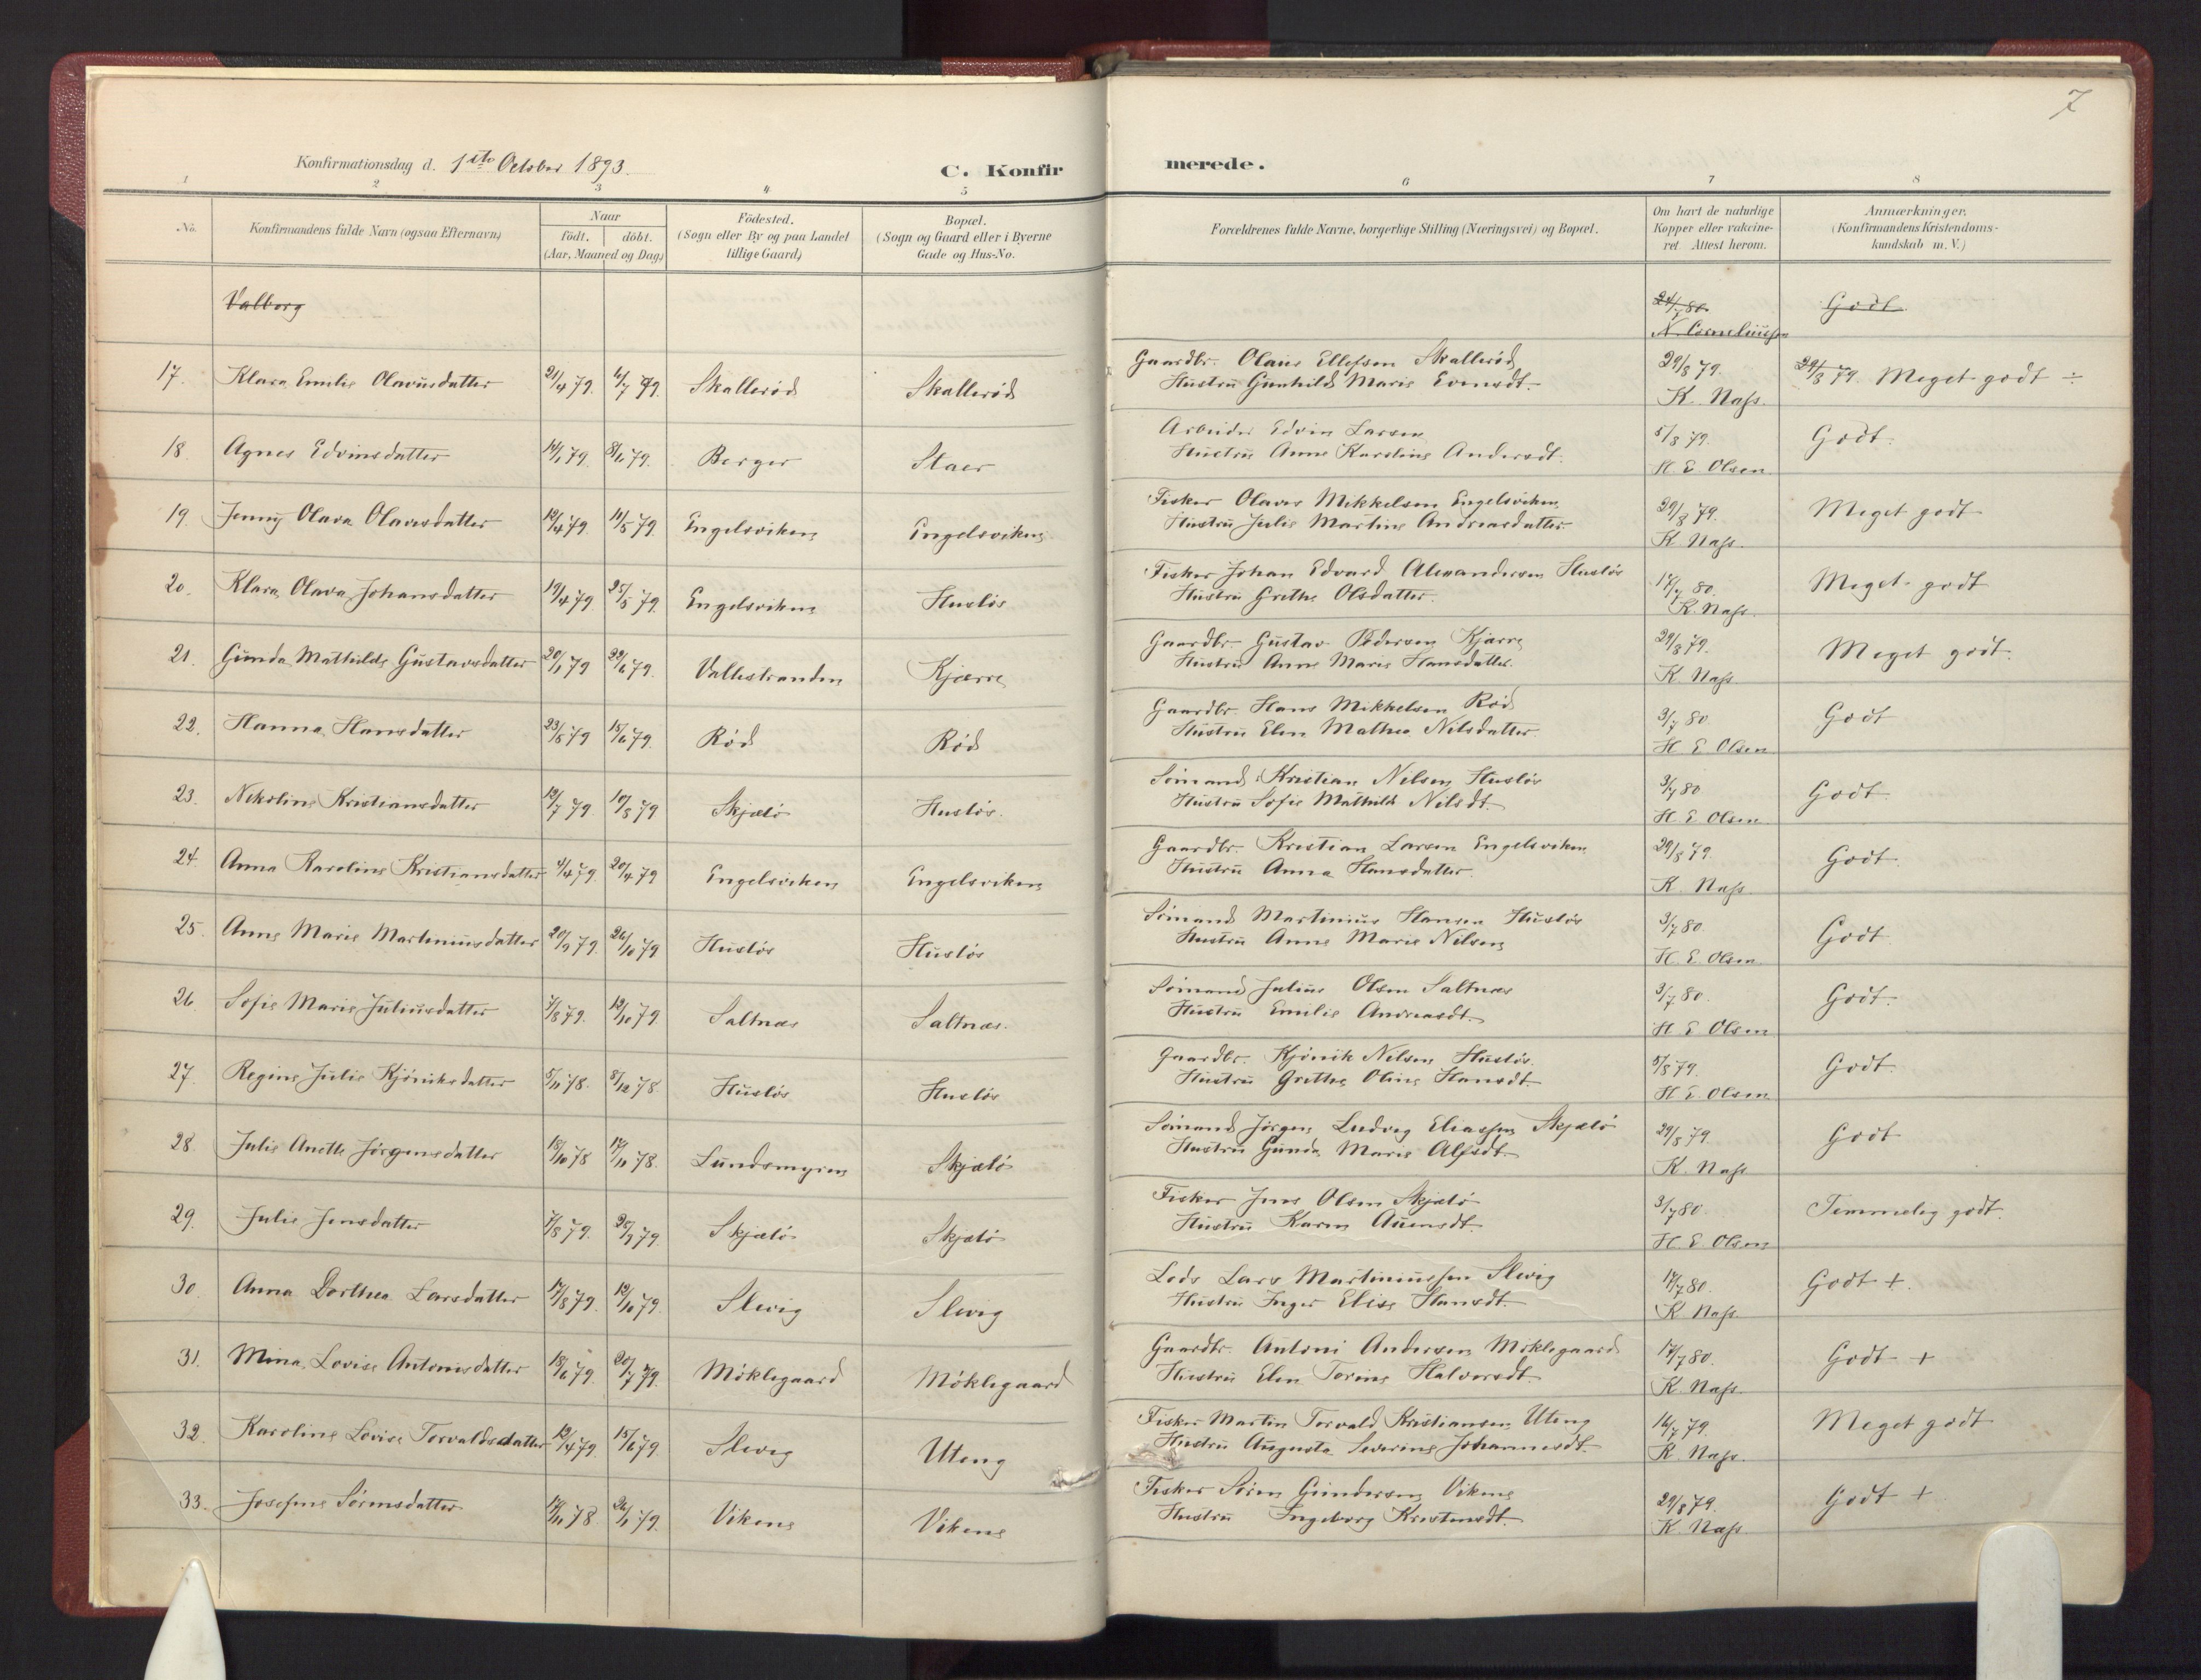 7
Konfirmationsdag d. 1ste October 1893.
C. Konfirmerede.
1 2 3 4 5 6 7 8
No. Konfirmandens fulde Navn (ogsaa Efternavn) Naar födt. döbt. (Aar, Maaned og Dag) Födested. (Sogn eller By og paa Landet tillige Gaard) Bopæl. (Sogn og Gaard eller i Byerne Gade og Hus-No. Forældrenes fulde Navne, borgerlige Stilling (Næringsvei) og Bopæl. Om havt de naturlige Kopper eller vakcineret. Attest herom. Anmærkninger. (Konfirmandens Kristendomskundskab m. V.)
Valborg 24/7 80. Godt.
N. Corneliussen
17. Klara Emilie Olausdatter 21/4 79. 6/7 79. Skallerød Skallerød Gaardbr. Olaus Ellefsen Skallerød 29/8 79. 29/8 79. Meget godt ÷
Hustru Gunhild Marie Evensdt. K. Nass.
18. Agnes Edvinsdatter 14/1 79. 8/6 79. Berger Staer Arbeider Edvin Larsen 5/8 79. Godt.
Hustru Anne Karoline Andersdt. H. E. Olsen
19. Jenny Olava Olavesdatter 12/4 79. 11/5 79. Engelsviken Engelsviken Fisker Olaves Mikkelsen Engelsviken 29/8 79. Meget godt
Hustru Julie Martine Andreasdatter K. Nass.
20. Klara Olava Johansdatter 19/4 79. 25/5 79. Engelsviken Husløs Fisker Johan Edvard Alexandersen Husløs 17/7 80. Meget godt
Hustru Grethe Olsdatter. K. Nass.
21. Gunda Mathilde Gustavsdatter 20/1 79 22/6 79. Vallestranden Kjærre Gaardbr. Gustav Pedersen Kjærre 29/8 79. Meget godt.
Hustru Anne Marie Hansdatter. K. Nass
22. Hanna Hansdatter 23/5 79 15/6 79. Rød Rød Gaardbr. Hans Mikkelsen Rød 3/7 80 Godt
Hustru Elen Mathea Nilsdatter. H. E. Olsen
23. Nikoline Kristiansdatter 12/7 79. 10/8 79 Skjælø Husløs. Sømand Kristian Nilsen Husløs 3/7 80 Godt.
Hustru Sofie Mathilde Nilsdt. H. E. Olsen
24. Anna Karoline Kristiansdatter 4/4 79. 20/4 79 Engelsviken Engelsviken Gaardbr. Kristian Larsen Engelsviken 29/8 79. Godt.
Hustru Anna Hansdatter. K. Nass.
25. Anne Marie Martiniusdatter 20/9 79. 26/10 79 Husløs Husløs Sømand Martinius Hansen Husløs 3/7 80. Godt
Hustru Anne Marie Nilsen H. E. Olsen
26. Sofie Marie Juliusdatter 7/8 79. 12/10 79. Saltnæs Saltnæs. Sømand Julius Olsen Saltnæs 3/7 80. Godt.
Hustru Emilie Andreasdt. H. E. Olsen
27. Regine Julie Kjøniksdatter 5/11 78. 8/12 78. Husløs Husløs Gaardbr. Kjønik Nilsen Husløs. 5/8 79. Godt.
Hustru Grethe Oline Hansdt. H. E. Olsen
28. Julie Anette Jørgensdatter 18/10 78 17/11 78. Lundsmyren Skjælø Sømand Jørgen Ludvig Eliassen Skjælø 29/8 79. Godt
Hustru Gunda Marie Alfsdt. K. Nass
29. Julie Jensdatter 7/8 79. 28/9 79. Skjælø Skjælø Fisker Jens Olsen Skjælø 3/7 80. Temmelig godt.
Hustru Karen Auensdt. H. E. Olsen
30. Anna Dorthea Larsdatter 17/8 79. 12/10 79. Slevig Slevig Lods Lars Martiniussen Slevig 17/7 80. Godt +.
Hustru Inger Elise Hansdt. K. Nass.
31. Mina Lovise Antonisdatter 18/6 79. 20/7 79. Møklegaard Møklegaard Gaardbr. Antoni Andersen Møklegaard 17/7 80. Godt +
Hustru Elen Torine Halvorsdt. K. Nass.
32. Karoline Lovise Torvaldsdatter 12/4 79. 15/6 79 Slevig Uteng Fisker Martin Torvald Kristiansen Uteng 16/7 79. Meget godt
Hustru Augusta Severine Johannesdt. K. Nass.
33. Josefine Sørensdatter 17/11 78. 26/1 79. Vikene Vikene Fisker Søren Gundersen Vikene 29/8 79. Godt +
Hustru Ingeborg Kristensdt. K. Nass